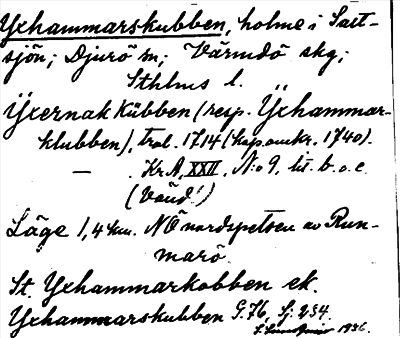 Yxhammarskubben, holme i Salt-
sjön; Djurö sn; Värmdö skg;
Sthlms l.
Ÿxernak Kübben (resp. Ÿxhammar-
klubben), trol. 1714 (kop. omkr. 1740).
— . KrA, XXII, N:o 9, lit. b. o. c.
(Vänd!)
Läge 1,4 km. NÖ nordspetsen av Run-
marö.
St. Yxhammarkobben ek.
Yxhammarskubben G. 76, S: 254.
1936.